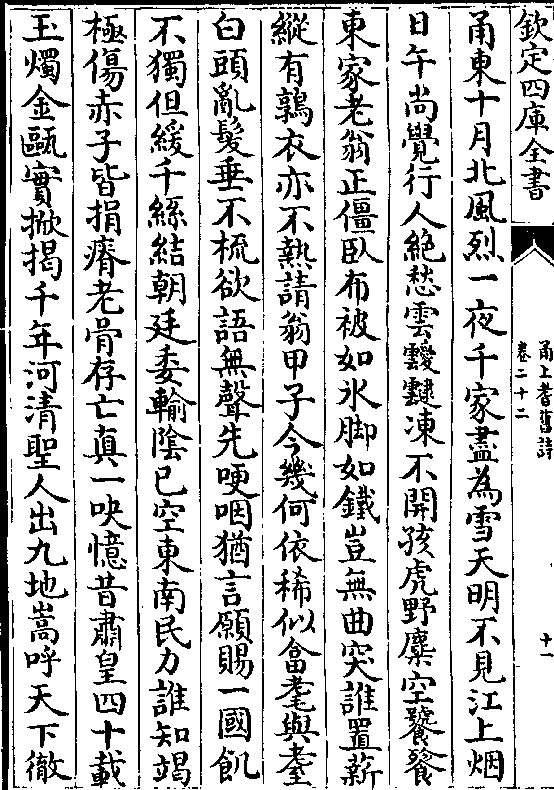 欽定四庫全書
甬上耆舊詩
卷二十二
十一
甬東十月北風烈一夜千家盡為雪天明不見江上烟
日午尚覺行人絶愁雲靉靆凍不開孩虎野麋空饕餮
東家老翁正僵臥布被如氷脚如鐵豈無曲突誰置薪
縱有鶉衣亦不熱請翁甲子今幾何依稀似畣耄與耋
白頭亂髮垂不梳欲語無聲先哽咽猶言願賜一國飢
不獨但緩千絲結朝廷委輸陰已空東南民力誰知竭
極傷赤子皆捐瘠老骨存亡真一吷憶昔肅皇四十載
玉燭金甌實掀揭千年河清聖人出九地嵩呼天下徹